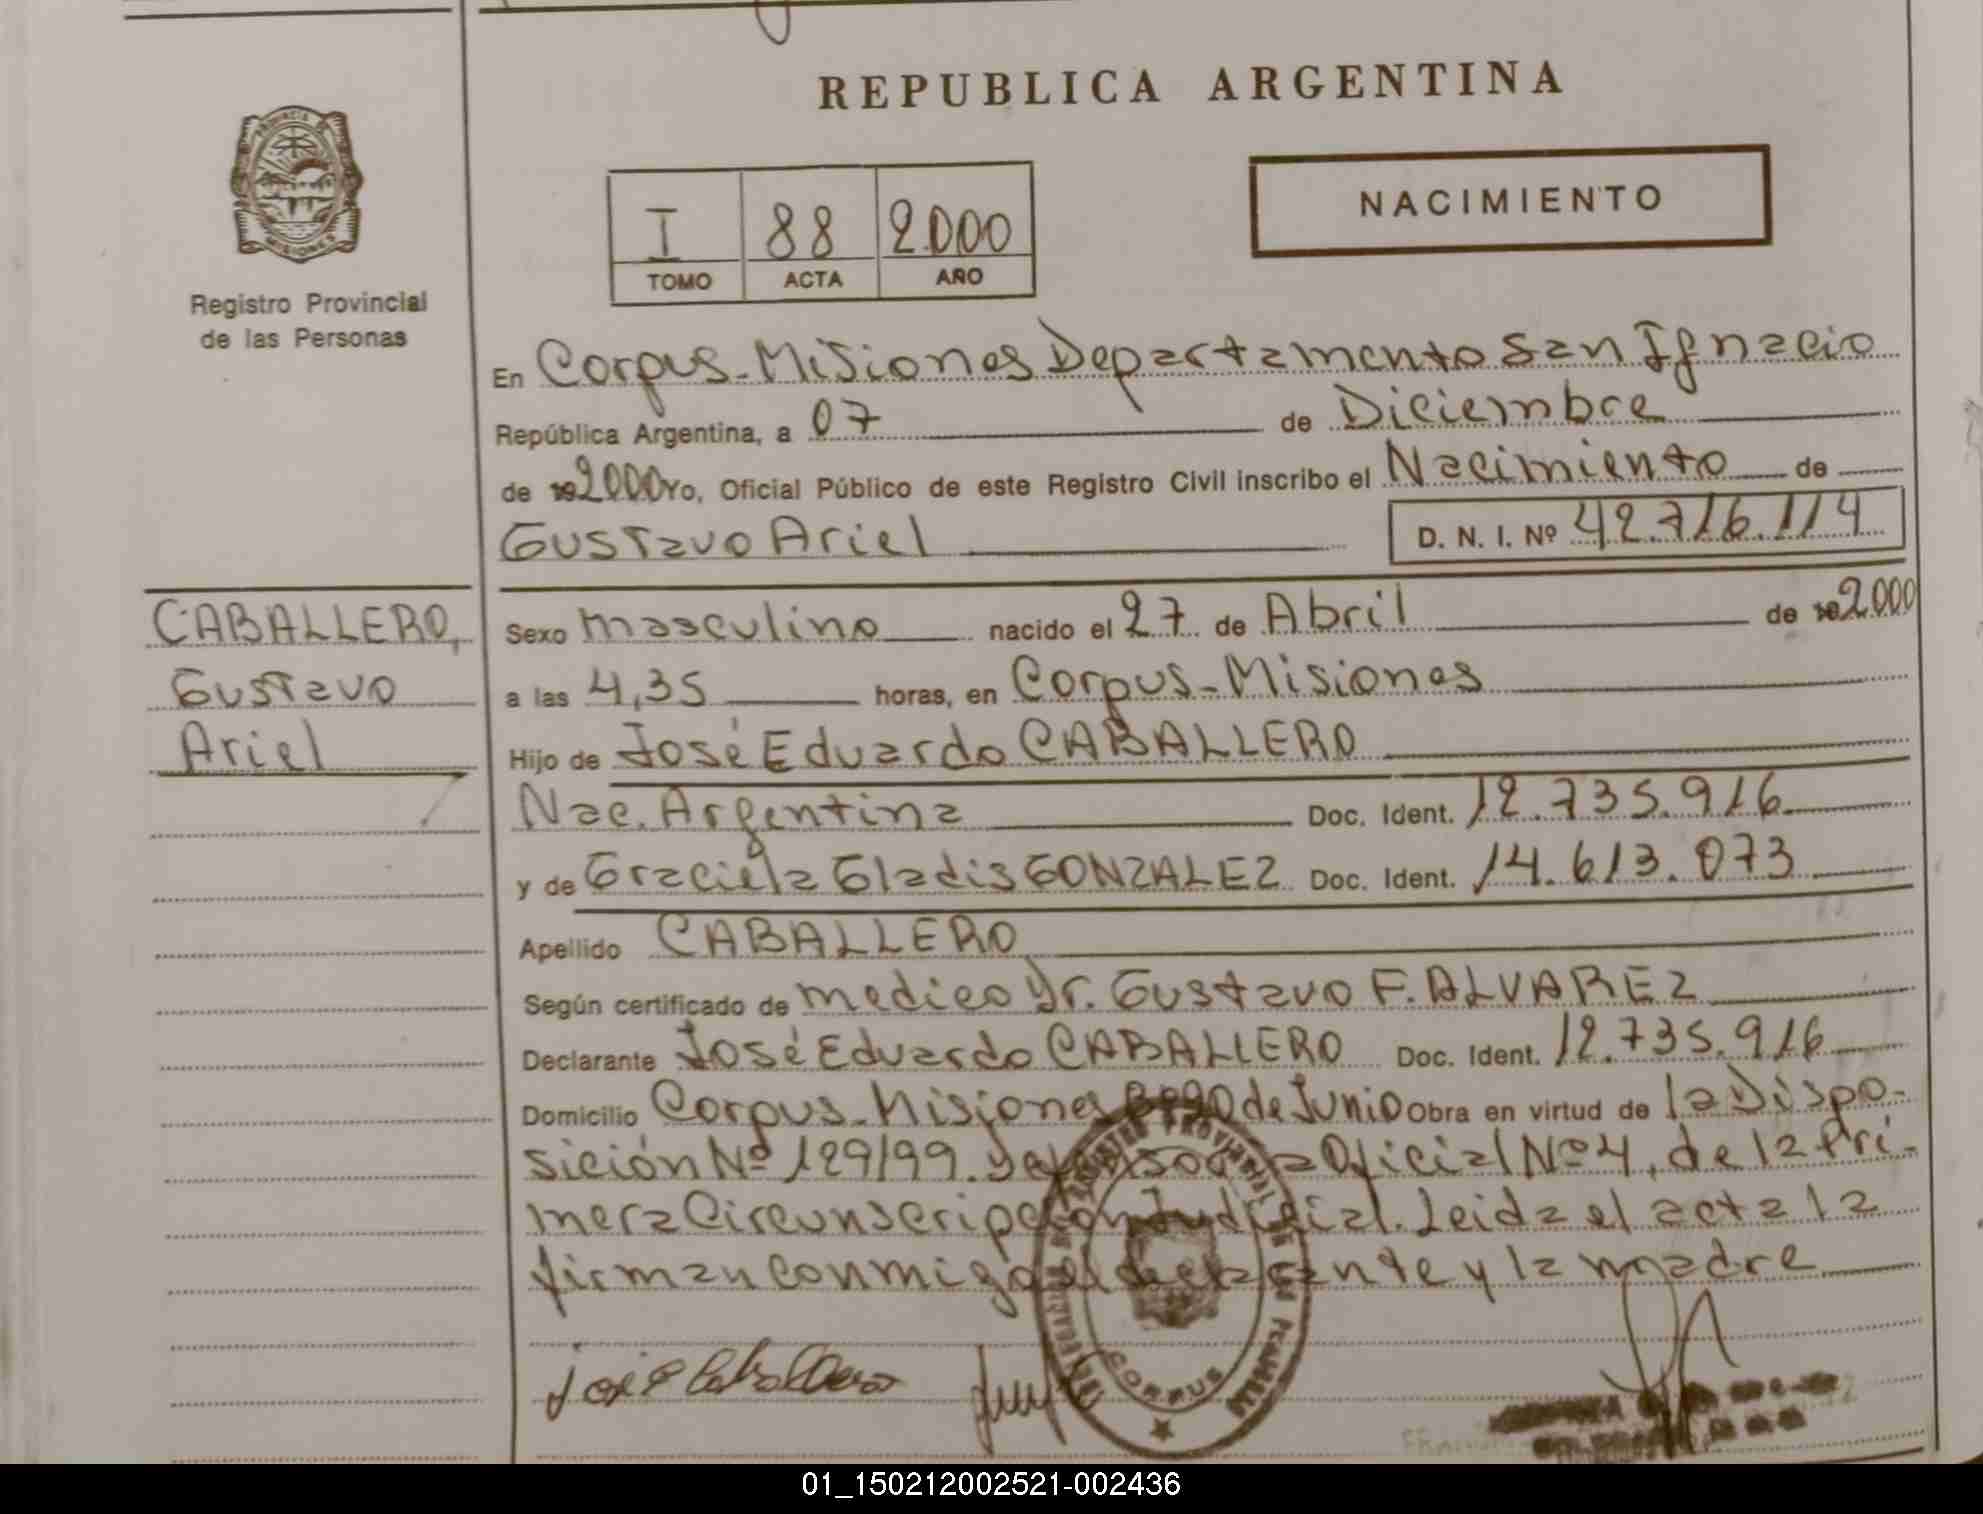 REPUBLICA ARGENTINA
PROVINCIA DE
MISIONES
Registro Provincial
de las Personas
I 88 2.000
TOMO ACTA AÑO
NACIMIENTO
En Corpus-Misiones Departamento San Ignacio
República Argentina, a 07 de Diciembre
de 192000 Yo, Oficial Público de este Registro Civil inscribo el Nacimiento de
Gustavo Ariel D. N. I. Nº 42.716.114
CABALLERO,
Gustavo
Ariel
Sexo masculino nacido el 27 de Abril de 192.000
a las 4,35 horas, en Corpus-Misiones
Hijo de José Eduardo CABALLERO
Nac. Argentina Doc. Ident. 12.735.916
y de Graciela Gladis GONZALEZ Doc. Ident. 14.613.073
Apellido CABALLERO
Según certificado de medico Dr. Gustavo F. ALVAREZ
Declarante José Eduardo CABALLERO Doc. Ident. 12.735.916
Domicilio Corpus-Misiones de Junio Obra en virtud de la Dispo-
sición Nº 129/99. Oficial Nº 4, de la Pri-
mera Circunscripción Judicial. Leida el acta la
firman conmigo el declarante y la madre
José E Caballero
REGISTRO PROVINCIAL DE LAS PERSONAS
CORPUS
01_150212002521-002436